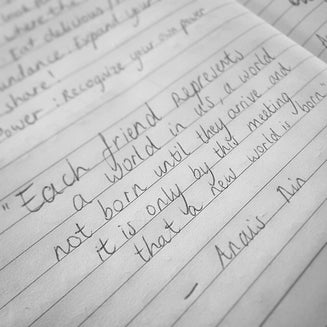 where the
Eat delicious
undance. Expand your
share!
ower: Recognize your own power
"Each friend represents
a world in us, a world
not born until they arrive and
it is only by this meeting
that a new world is born"
- Anais Nin